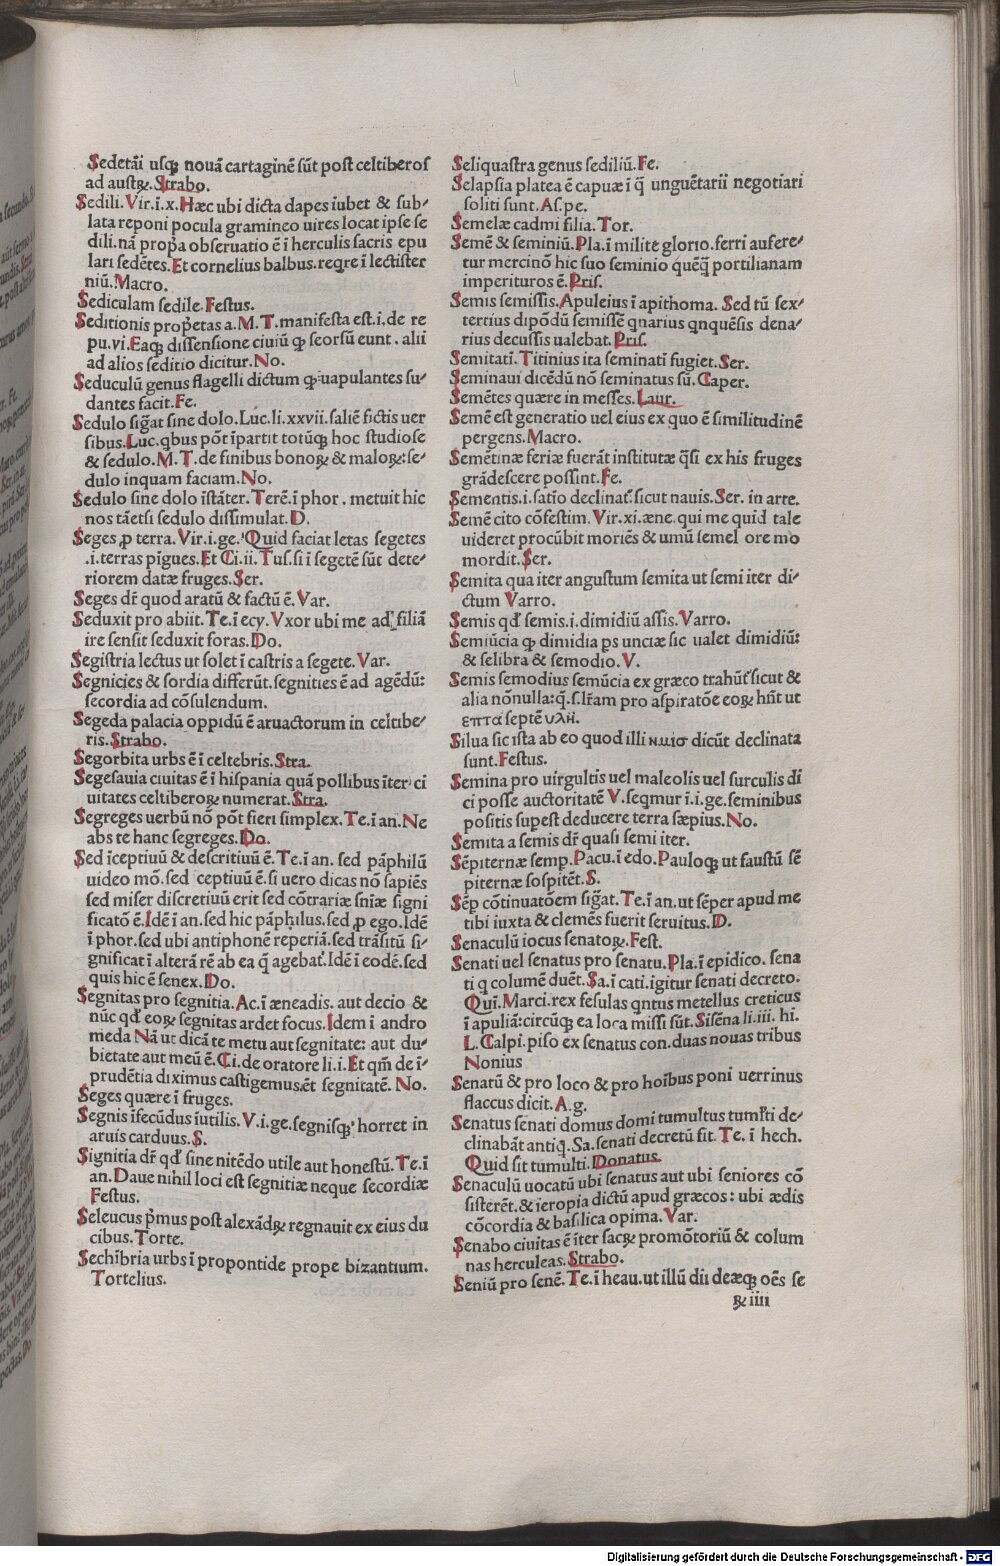 Sedetāi usqꝫ nouā cartaginē sūt post celtiberos
ad austꝝ. Strabo.
Sedili. Vir.i.x. Hæc ubi dicta dapes iubet & sub/
lata reponi pocula gramineo uires locat ipse se
dili. nā propa obseruatio ē ī herculis sacris epu
lari sedētes. Et cornelius balbus. reqre ī lectister
niū. Macro.
Sediculam sedile. Festus.
Seditionis propetas a. M. T. manifesta est. i. de re
pu. vi. Eaqꝫ dissensione ciuiū qꝫ seorsū eunt. alii
ad alios seditio dicitur. No.
Seduculū genus flagelli dictum qꝫ uapulantes su/
dantes facit. Fe.
Sedulo sigat sine dolo. Luc. li. xxvii. saliē fictis uer
sibus. Luc. qbus pōt īpartit totūqꝫ hoc studiose
& sedulo. M. T. de finibus bonoꝝ & maloꝝ: se/
dulo inquam faciam. No.
Sedulo sine dolo īstāter. Terē. ī phor. metuit hic
nos tāetsi sedulo dissimulat. D.
Seges ꝓ terra. Vir. i. ge. Quid faciat letas segetes
.i. terras pīgues. Et Ci. ii. Tus. si ī segetē sūt dete/
riorem datæ fruges. Ser.
Seges dr̄ quod aratū & factū ē. Var.
Seduxit pro abiit. Te. ī ecy. Vxor ubi me ad filiā
ire sensit seduxit foras. Do.
Segistria lectus ut solet ī castris a segete. Var.
Segnicies & sordia differūt. segnities ē ad agēdū:
secordia ad cōsulendum.
Segeda palacia oppidū ē aruactorum in celtibe/
ris. Strabo.
Segorbita urbs ē ī celtebris. Stra.
Segesauia ciuitas ē ī hispania quā pollibus īter ci
uitates celtiberoꝝ numerat. Stra.
Segreges uerbū nō pōt fieri simplex. Te. ī an. Ne
abs te hanc segreges. Do.
Sed īceptiuū & descritiuū ē. Te. ī an. sed pāphilū
uideo mō. sed ceptiuū ē. si uero dicas nō sapiēs
sed miser discretiuū erit sed cōtrariæ sniæ signi
ficatō ē. Idē ī an. sed hic pāphilus. sed ꝓ ego. Idē
ī phor. sed ubi antiphonē reperiā. sed trāsitū si/
gnificat ī alterā rē ab ea q̄ agebat. Idē ī eodē. sed
quis hic ē senex. Do.
Segnitas pro segnitia. Ac. ī æneadis. aut decio &
nūc qd̓ eoꝝ segnitas ardet focus. Idem ī andro
meda Nā ut dicā te metu aut segnitate: aut du/
bietate aut meū ē. Ci. de oratore li. i. Et qm̄ de ī/
prudētia diximus castigemus. et segnitatē. No.
Seges quære ī fruges.
Segnis īfecūdus īutilis. V. i. ge. segnisqꝫ horret in
aruis carduus. S.
Signitia dr̄ qd̓ sine nitēdo utile aut honestū. Te. ī
an. Daue nihil loci est segnitiæ neque secordiæ
Festus.
Seleucus pr̄mus post alexādꝝ regnauit ex eius du
cibus. Torte.
Sechībria urbs ī propontide prope bizantium.
Tortelius.
Seliquastra genus sediliū. Fe.
Selapsia platea ē capuæ ī q̄ unguētarii negotiari
soliti sunt. As. pe.
Semelæ cadmi filia. Tor.
Semē & seminiū. Pla. ī milite glorio. ferri aufere/
tur mercinō hic suo seminio quēqꝫ portilianam
imperituros ē. Pris.
Semis semissis. Apuleius ī apithoma. Sed tū sex/
tertius dipōdū semissē qnarius qnquēsis dena/
rius decussis ualebat. Pris.
Semitatī. Titinius ita seminatī fugiet. Ser.
Seminaui dicēdū nō seminatus sū. Caper.
Semētes quære in messes. Laur.
Semē est generatio uel eius ex quo ē similitudinē
pergens. Macro.
Semētinæ feriæ fuerāt institutæ q̄si ex his fruges
grādescere possint. Fe.
Sementis. i. satio declinat. sicut nauis. Ser. in arte.
Semē cito cōfestim. Vir. xi. æne. qui me quid tale
uideret procūbit moriēs & umū semel ore mo
mordit. Ser.
Semita qua iter angustum semita ut semi iter di/
ctum Varro.
Semis qd̓ semis. i. dimidiū assis. Varro.
Semiūcia qꝫ dimidia ps unciæ sic ualet dimidiū:
& selibra & semodio. V.
Semis semodius semūcia ex græco trahūt sicut &
alia nōnulla: q. s. lr̄am pro aspiratōe eoꝝ hn̄t ut
επτα septē υλη.
Silua sic ista ab eo quod illi ημισ dicūt declinata
sunt. Festus.
Semina pro uirgultis uel maleolis uel surculis di
ci posse auctoritatē V. seqmur ī. i. ge. seminibus
positis supest deducere terra sæpius. No.
Semita a semis dr̄ quasi semi iter.
Sēpiternæ semp. Pacu. ī edo. Pauloqꝫ ut faustū sē
piternæ sospitēt. S.
Sēp cōtinuatōem sigat. Te. ī an. ut sēper apud me
tibi iuxta & clemēs fuerit seruitus. D.
Senaculū iocus senatoꝝ. Fest.
Senati uel senatus pro senatu. Pla. ī epidico. sena
ti q columē duēt. Sa. ī cati. igitur senati decreto.
Quī. Marci. rex fesulas qntus metellus creticus
ī apuliā: circūqꝫ ea loca missi sūt. Sisēna li. iii. hi.
L. Calpi. piso ex senatus con. duas nouas tribus
Nonius
Senatū & pro loco & pro hoībus poni uerrinus
flaccus dicit. A. g.
Senatus senati domus domi tumultus tumlti de/
clinabāt antiq. Sa. senati decretū fit. Te. ī hech.
Quid sit tumulti. Donatus.
Senaculū uocatū ubi senatus aut ubi seniores cō
sisterēt. & ieropia dictū apud græcos: ubi ædis
cōcordia & basilica opima. Var.
Senabo ciuitas ē īter sacꝝ promōtoriū & colum
nas herculeas. Strabo.
Seniū pro senē. Te. ī heau. ut illū dii deæqꝫ oēs se
ꝝ iiii
Digitalisierung gefördert durch die Deutsche Forschungsgemeinschaft - DFG